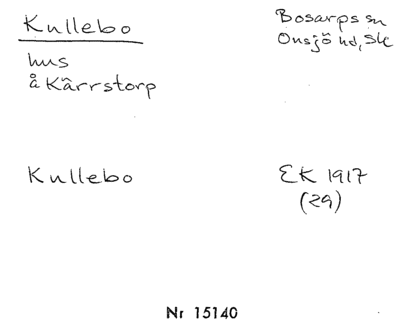 Kullebo
Bosarps sn
Onsjö hd, Sk
hus
å Kärrstorp
Kullebo
EK 1917
(29)
Nr 15140